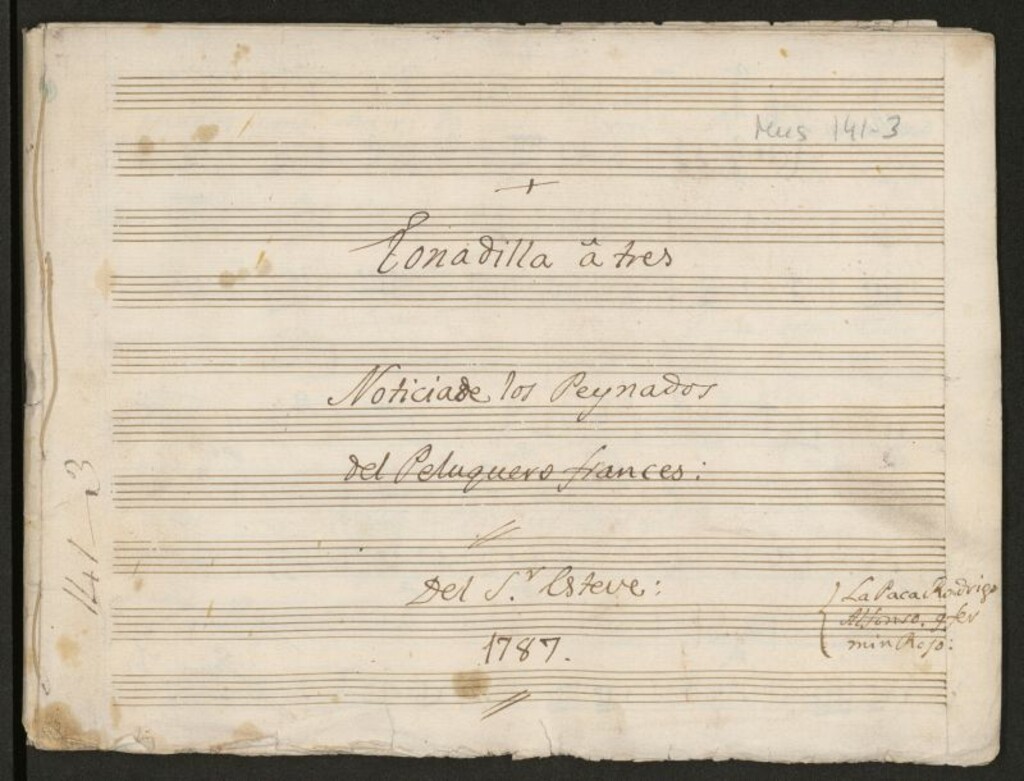 Mus 141-3
+
Tonadilla â tres
Noticia de los Peynados
del Peluquero frances:
Del S.r Esteve:
1787.
La Paca Rodrigo
Alfonso. y fer
min Rojo:
141-3